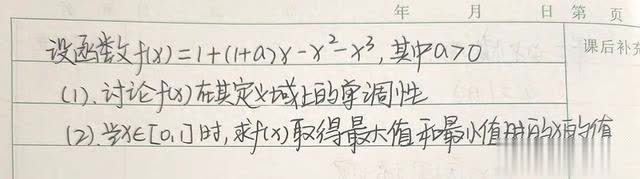 年 月 日 第 页
课后补充
设函数f(x)=1+(1+a)x-x²-x³,其中a>0
(1).讨论f(x)在其定义域上的单调性
(2).当x∈[0,1]时,求f(x)取得最大值和最小值时的x的值